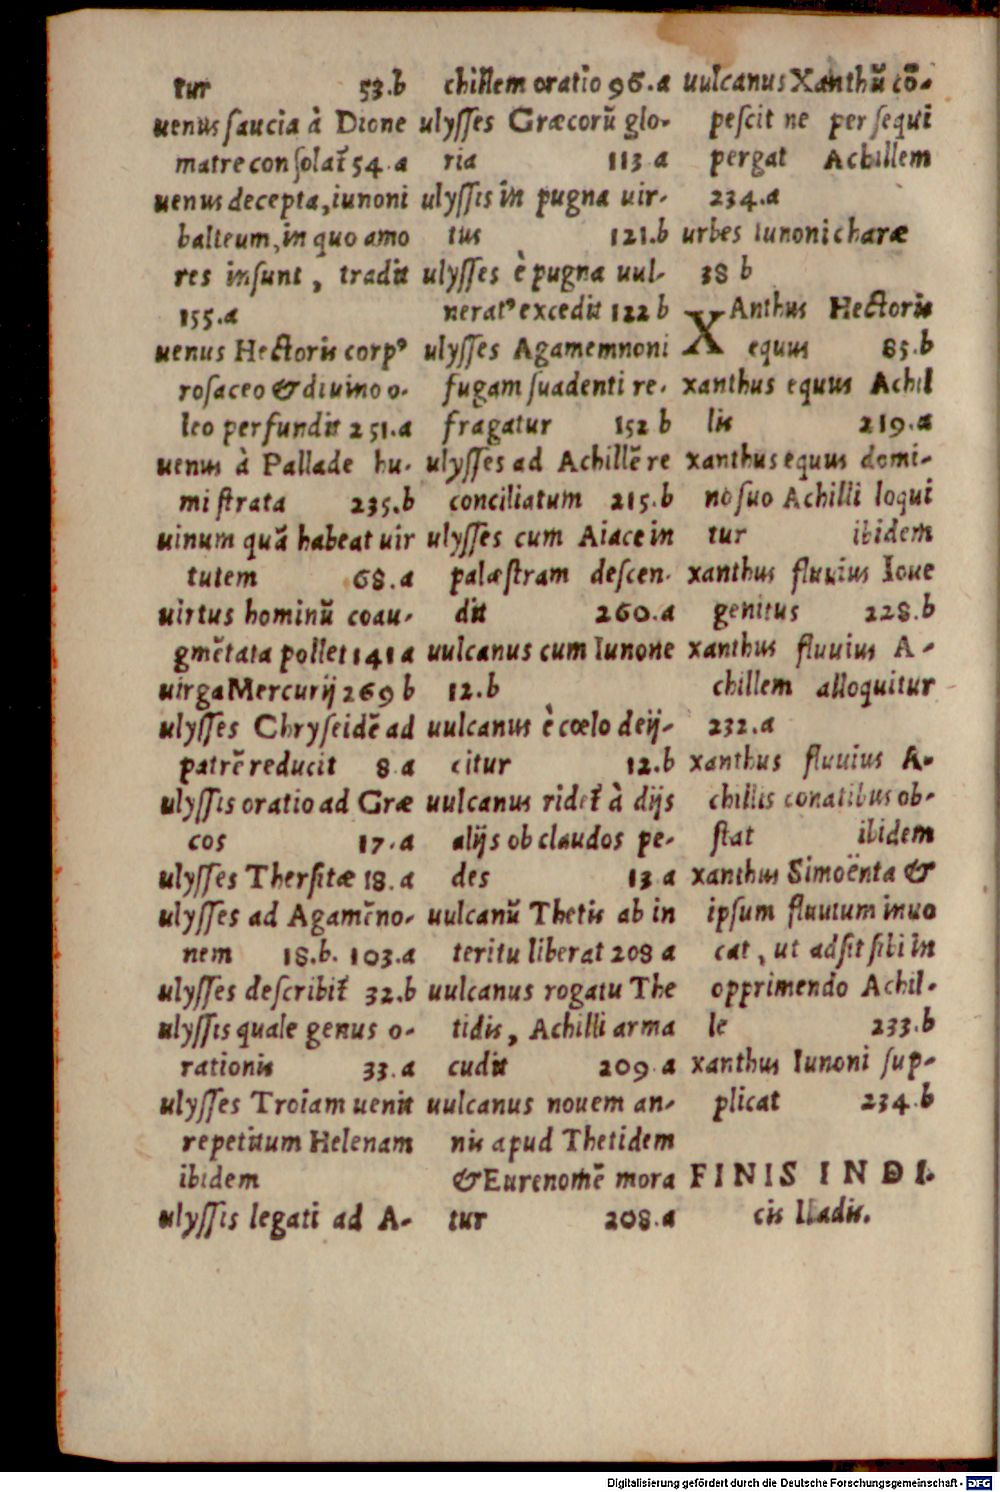 tur 53.b
uenus saucia à Dione
matre consolat̃ 54.a
uenus decepta, iunoni
balteum, in quo amo
res insunt, tradit
155.a
uenus Hectoris corpꝰ
rosaceo & diuino o-
leo perfundit 251.a
uenus à Pallade hu-
mi strata 235.b
uinum quã habeat uir
tutem 68.a
uirtus hominũ coau-
gmẽtata pollet 141 a
uirga Mercurij 269 b
ulysses Chryseidẽ ad
patrẽ reducit 8.a
ulyssis oratio ad Græ
cos 17.a
ulysses Thersitæ 18.a
ulysses ad Agamẽno-
nem 18.b. 103.a
ulysses describit̃ 32.b
ulyssis quale genus o-
rationis 33.a
ulysses Troiam uenit
repetitum Helenam
ibidem
ulyssis legati ad A-
chillem oratio 96.a
ulysses Græcorũ glo-
ria 113 a
ulyssis in pugna uir-
tus 121.b
ulysses è pugna uul-
neratꝰ excedit 122 b
ulysses Agamemnoni
fugam suadenti re-
fragatur 152 b
ulysses ad Achillẽ re
conciliatum 215.b
ulysses cum Aiace in
palæstram descen-
dit 260.a
uulcanus cum Iunone
12.b
uulcanus è cœlo deij-
citur 12.b
uulcanus ridet̃ à dijs
alijs ob claudos pe-
des 13.a
uulcanũ Thetis ab in
teritu liberat 208 a
uulcanus rogatu The
tidis, Achilli arma
cudit 209.a
uulcanus nouem an-
nis apud Thetidem
& Eurenomẽ mora
tur 208.a
uulcanus Xanthũ cõ-
pescit ne persequi
pergat Achillem
234.a
urbes Iunoni charæ
38 b
XAnthus Hectoris
equus 85.b
xanthus equus Achil
lis 219.a
xanthus equus domi-
no suo Achilli loqui
tur ibidem
xanthus fluuius Ioue
genitus 228.b
xanthus fluuius A-
chillem alloquitur
232.a
xanthus fluuius A-
chillis conatibus ob-
stat ibidem
xanthus Simoënta &
ipsum fluuium inuo
cat, ut adsit sibi in
opprimendo Achil-
le 233.b
xanthus Iunoni sup-
plicat 234.b
FINIS INDI-
cis Iliadis.
Digitalisierung gefördert durch die Deutsche Forschungsgemeinschaft - DFG